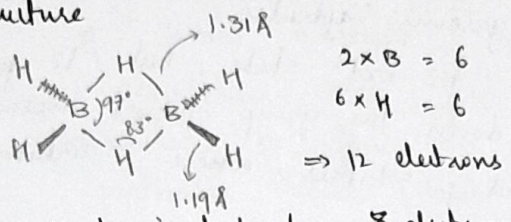 ucture
1.31Å
H H H
B 97° B
83°
H H H
1.19Å
2 x B = 6
6 x H = 6
⇒ 12 electrons